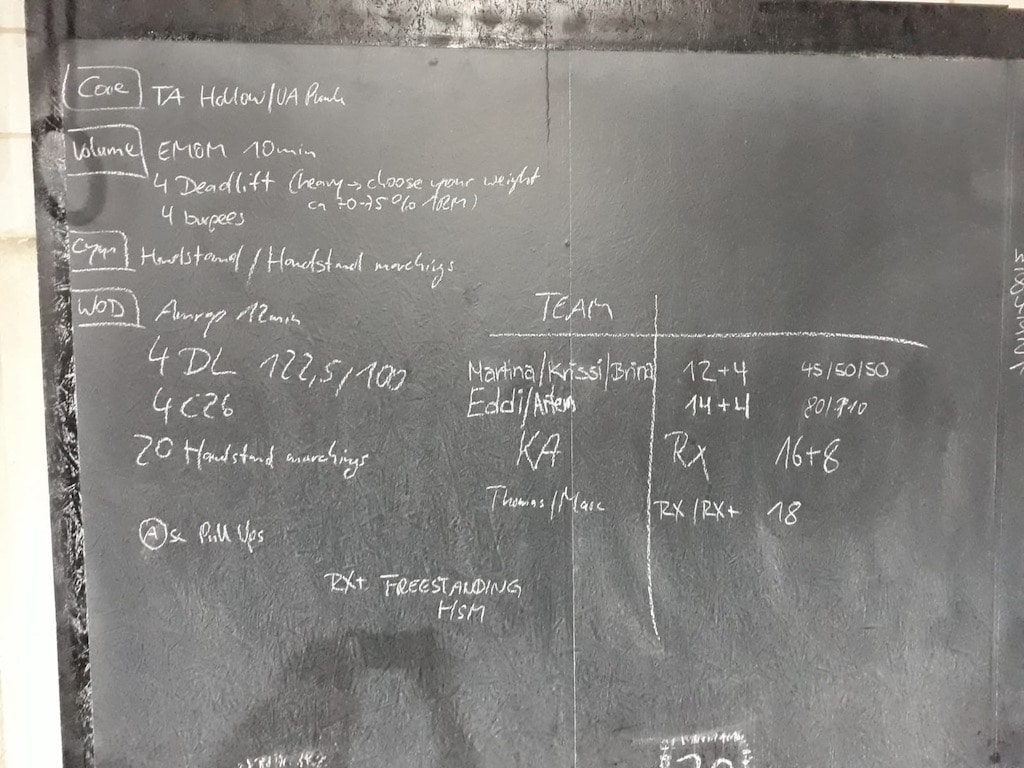 Core TA Hollow/UA Plank
Volume EMOM 10min
4 Deadlift (heavy → choose your weight
ca 70-75% 1RM)
4 burpees
Gym Handstand / Handstand marchings
WOD Amrap 12min
TEAM
4 DL 122,5/100
Martina/Krissi/Brina 12+4 45/50/50
4 C2B
Eddi/Artem 14+4
20 Handstand marchings
KA Rx 16+8
Thomas/Marc RX/RX+ 18
Pull Ups
RX+ FREESTANDING
HSM